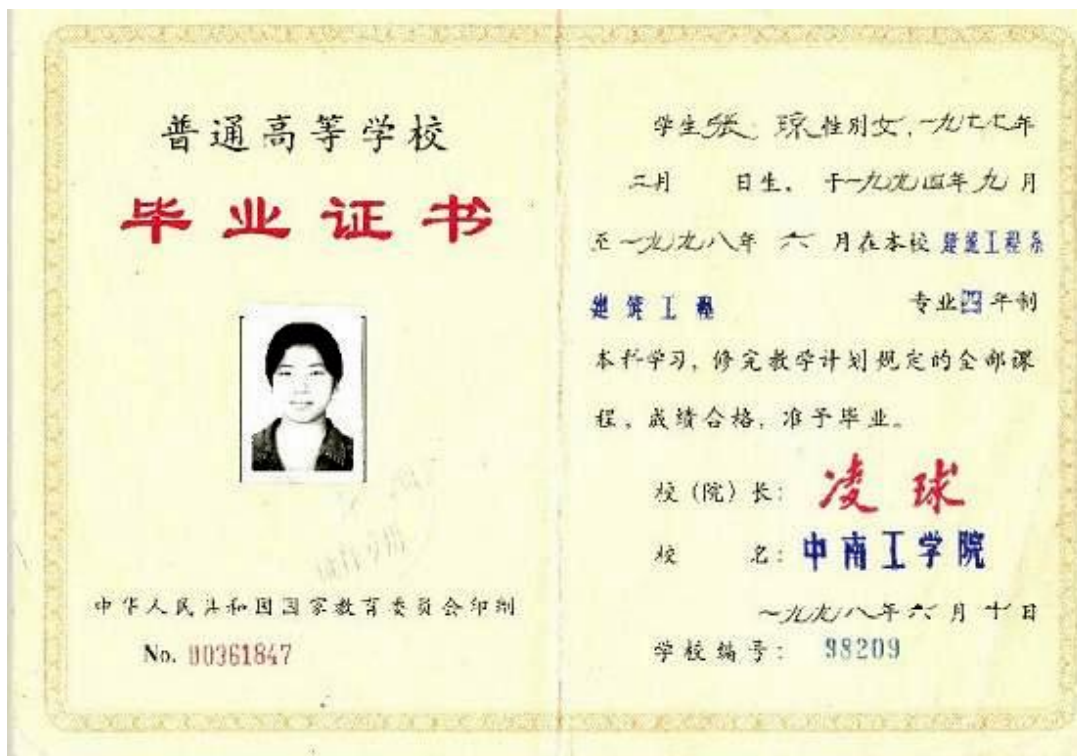 普通高等学校
毕业证书
中华人民共和国国家教育委员会印制
No. 00361847
学生张 琼性别女,一九七七年
二月 日生, 于一九九四年九月
至一九九八年 六 月在本校 建筑工程系
建筑工程 专业四年制
本科学习,修完教学计划规定的全部课
程、成绩合格,准予毕业。
校(院)长: 凌球
校 名: 中南工学院
一九九八年六月十日
学校编号: 98209